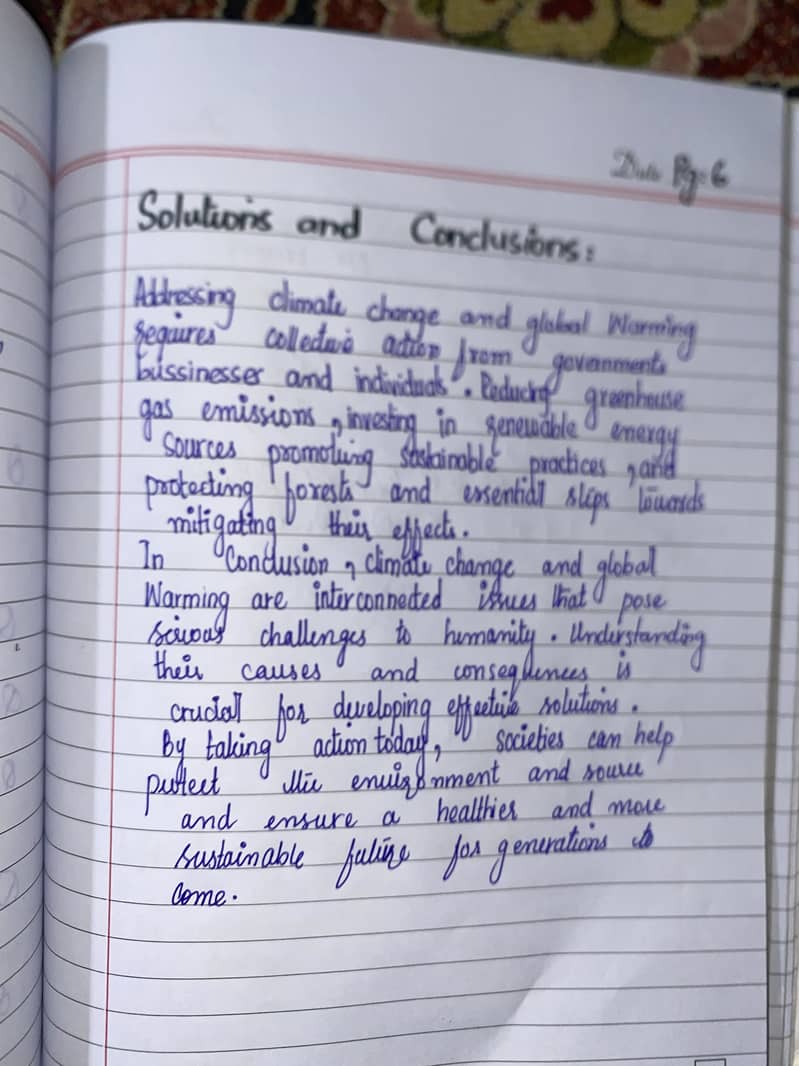 Date Pg: 6
Solutions and Conclusions:
Addressing climate change and global Warming
requires collective action from governments
bussinesser and individuals. Reducing greenhouse
gas emissions, investing in renewable energy
Sources promoting sustainable practices, and
protecting forests and essential steps towards
mitigating their effects.
In Conclusion, climate change and global
Warming are interconnected issues that pose
serious challenges to humanity. Understanding
their causes and consequences is
crucial for developing effective solutions.
By taking action today, societies can help
protect the environment and
and ensure a healthier and more
sustainable future for generations to
come.